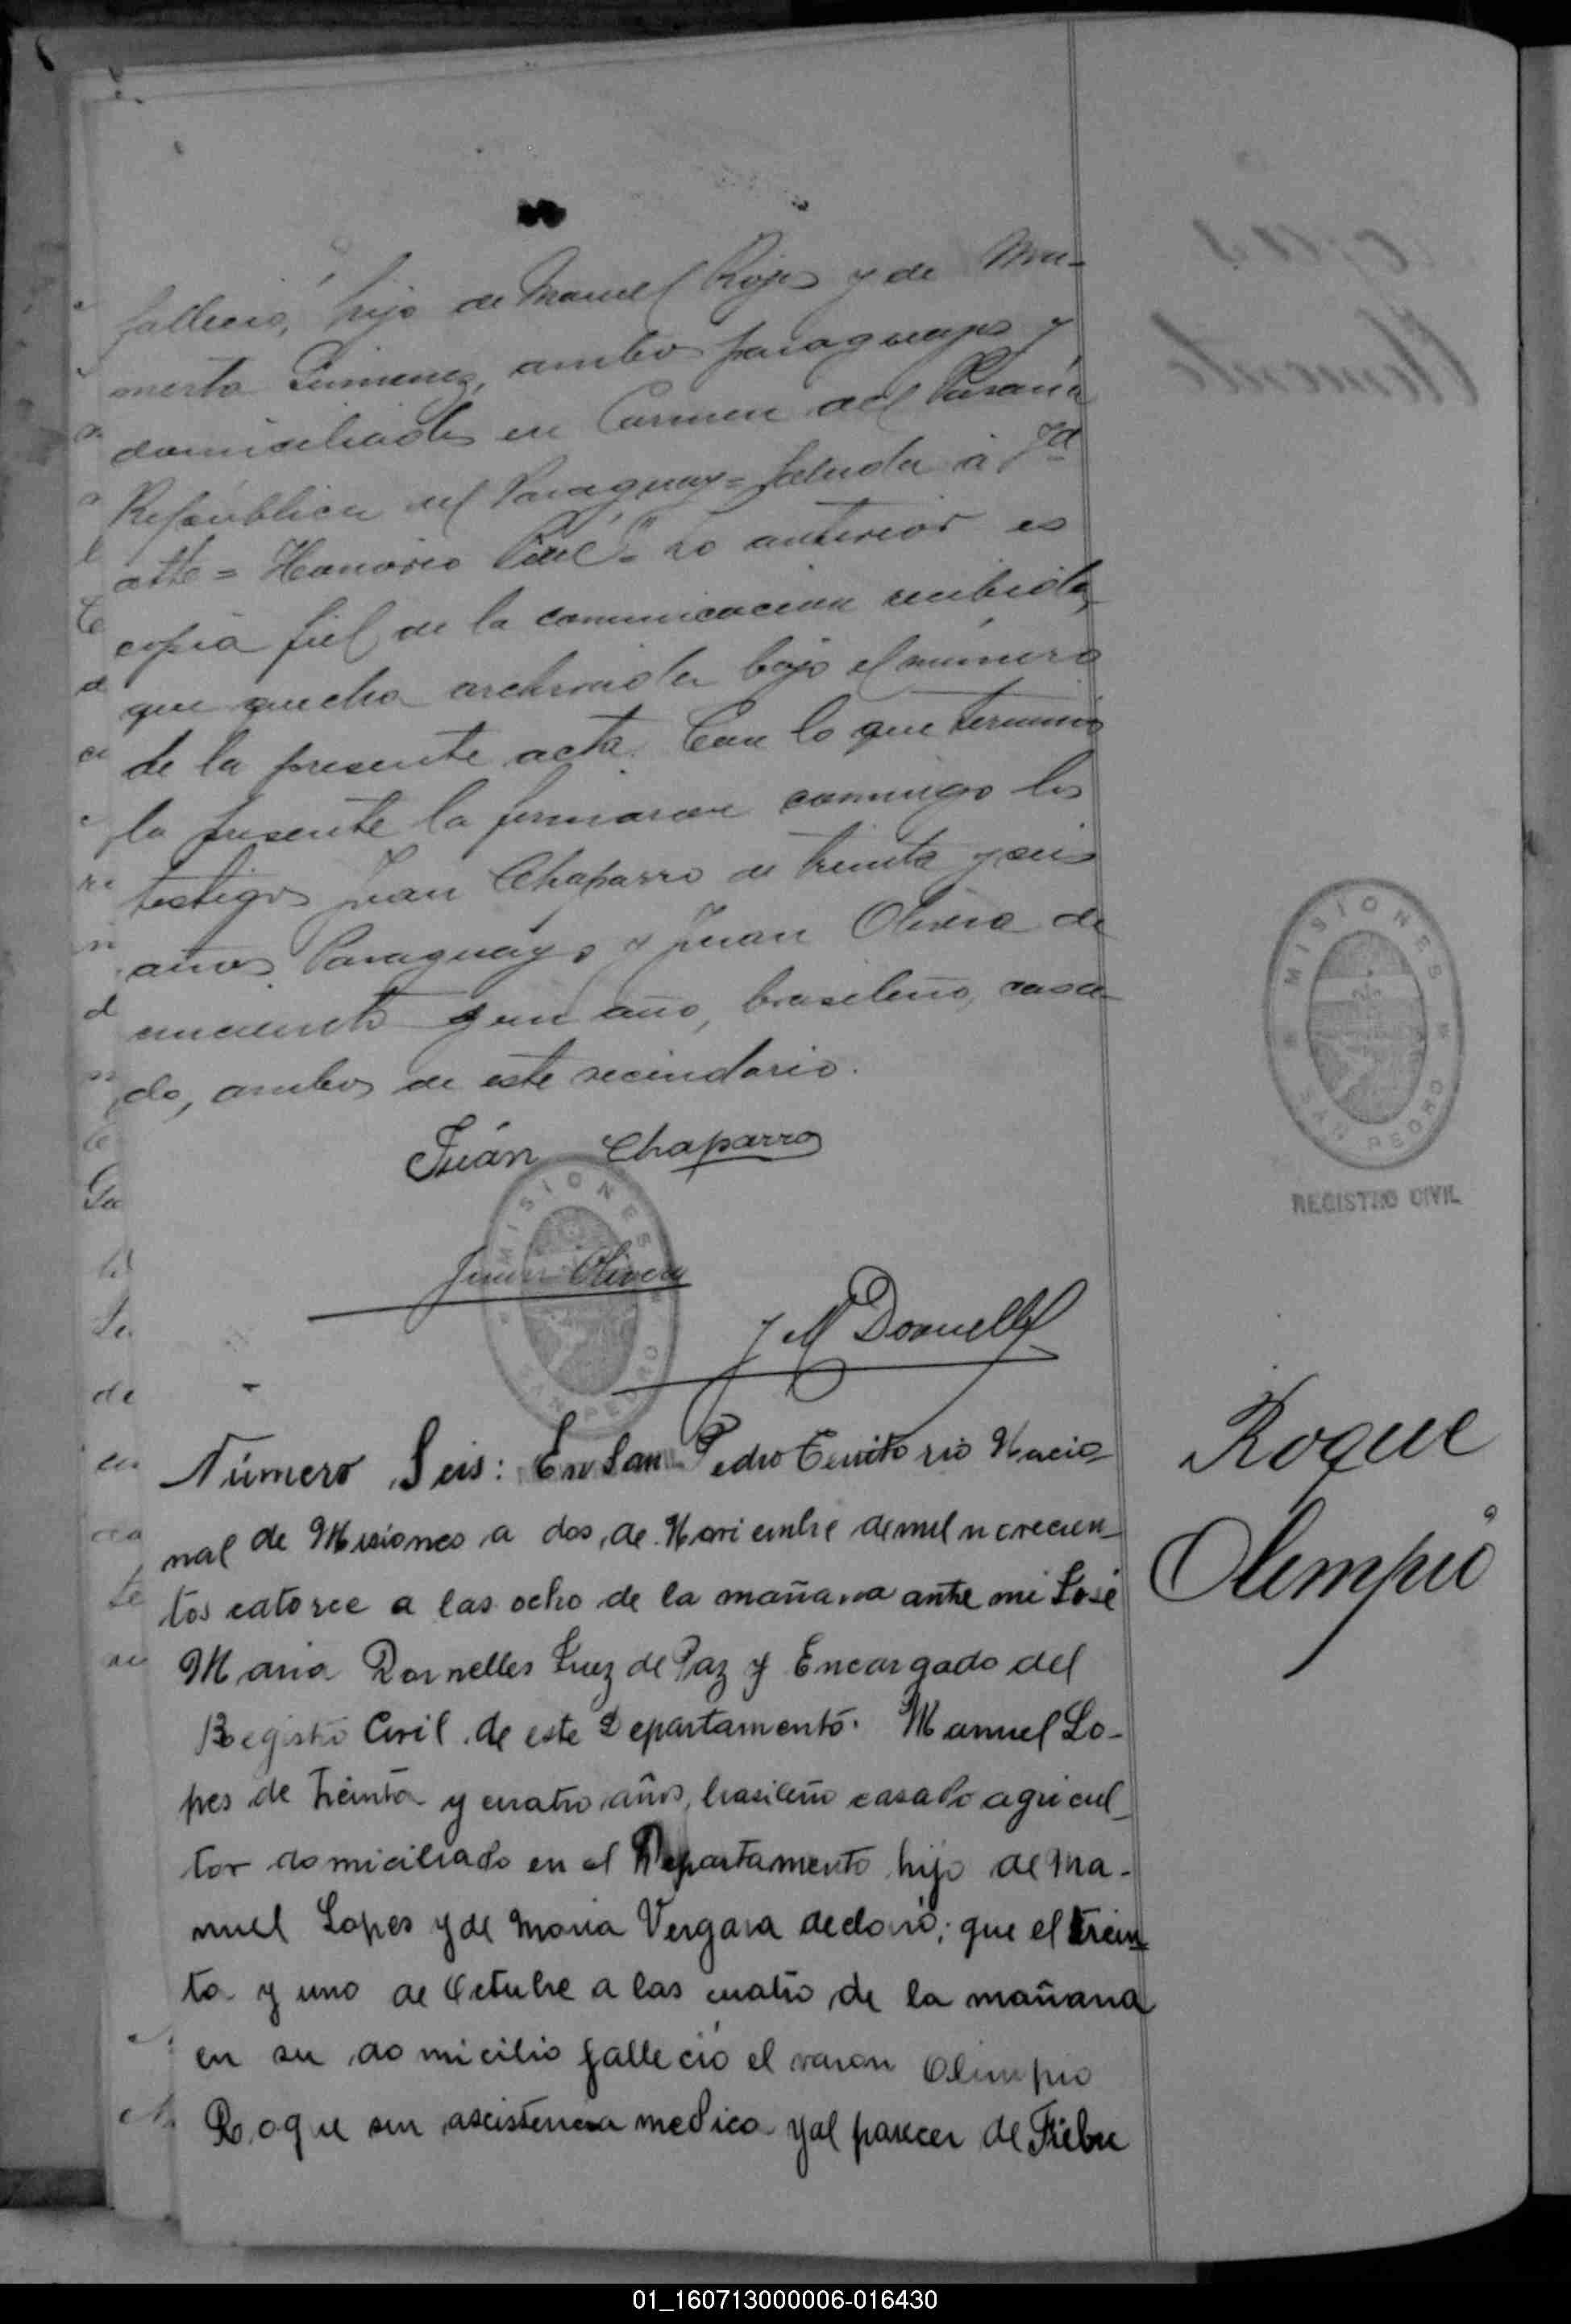 falleció, hijo de Manuel Rojas y de
Gimenez, ambos paraguayos y
domiciliados en Carmen del Paraná
República del Paraguay = Saluda á Vd
atte = Honorio " Lo anterior es
copia fiel de la comunicacion recibida,
que queda archivada bajo el número
de la presente acta. Con lo que terminó
la presente la firmaron conmigo los
testigos Juan Chaparro de treinta y seis
años Paraguayo y Juan Olivera de
cincuenta y un año, brasileño, casa-
do, ambos de este vecindario.
Juán Chaparro
Juan Olivera
J M Dornelles
MISIONES
SAN PEDRO
MISIONES
SAN PEDRO
REGISTRO CIVIL
Roque
Olimpio
Número Seis: En San Pedro Territorio Nacio-
nal de Misiones a dos de Noviembre de mil novecien-
tos catorce a las ocho de la mañana ante mi José
Maria Dornelles Juez de Paz y Encargado del
Registro Civil de este Departamento. Manuel Lo-
pes de treinta y cuatro años, brasileño casado agricul-
tor domiciliado en el Departamento hijo de Ma-
nuel Lopes y de Maria Vergara declaró; que el trein-
ta y uno de Octubre a las cuatro de la mañana
en su domicilio falleció el varon Olimpio
Roque sin ascistencia medica y al parecer de Fiebre
01_160713000006-016430